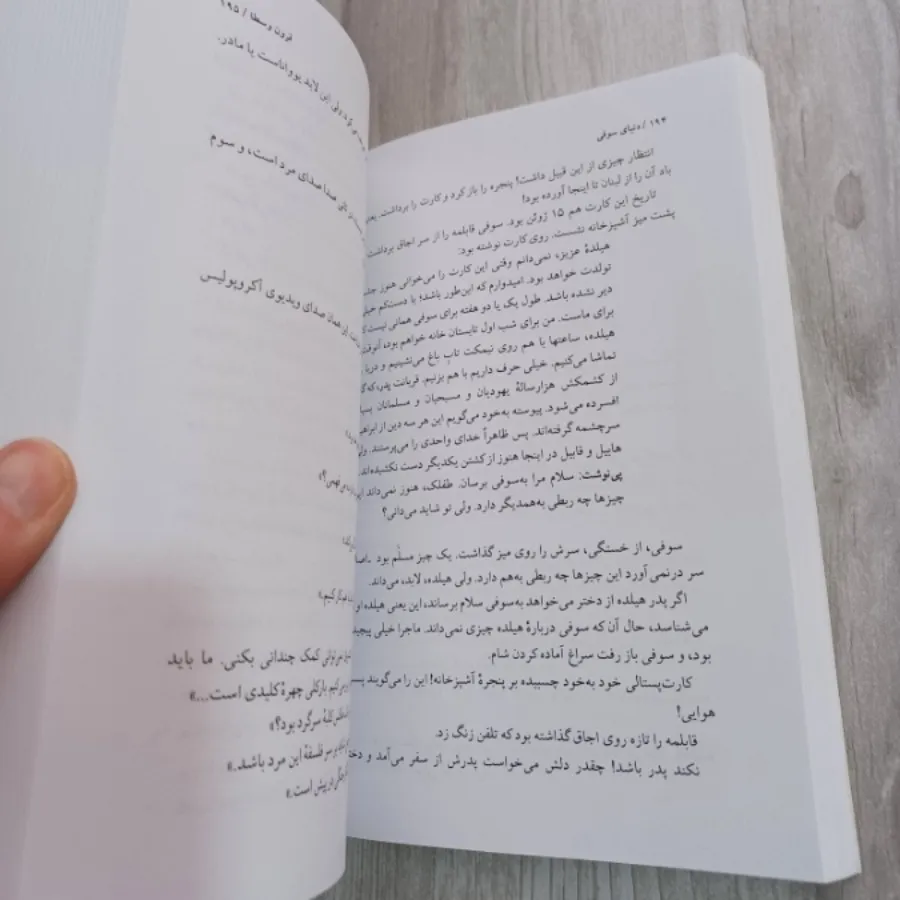 ۱۹۴ / دنیای سوفی
انتظار چیزی از این قبیل داشت! پنجره را باز کرد و کارت را برداشت. یعنی
باد آن را از لبنان تا اینجا آورده بود!
تاریخ این کارت هم ۱۵ ژوئن بود. سوفی قابلمه را از سر اجاق برداشت
پشت میز آشپزخانه نشست. روی کارت نوشته بود:
هیلدهٔ عزیز، نمی‌دانم وقتی این کارت را می‌خوانی هنوز
تولدت خواهد بود. امیدوارم که این‌طور باشد؛ یا دستکم خیلی
دیر نشده باشد. طول یک یا دو هفته برای سوفی همانی نیست که
برای ماست. من برای شب اول تابستان خانه خواهم بود، آنوقت
هیلده، ساعتها با هم روی نیمکت تاب باغ می‌نشینیم و دریا
تماشا می‌کنیم. خیلی حرف داریم با هم بزنیم. قربانت پدر، که
از کشمکش هزارسالهٔ یهودیان و مسیحیان و مسلمانان
افسرده می‌شود. پیوسته به‌خود می‌گویم این هر سه دین از
سرچشمه گرفته‌اند. پس ظاهراً خدای واحدی را می‌پرستند.
هابیل و قابیل در اینجا هنوز از کشتن یکدیگر دست نکشیده‌اند.
پی‌نوشت: سلام مرا به‌سوفی برسان. طفلک، هنوز نمی‌داند
چیزها چه ربطی به‌همدیگر دارد. ولی تو شاید می‌دانی؟
سوفی، از خستگی، سرش را روی میز گذاشت. یک چیز مسلّم بود
سر درنمی آورد این چیزها چه ربطی به‌هم دارد. ولی هیلده، لابد، می‌داند.
اگر پدر هیلده از دختر می‌خواهد به‌سوفی سلام برساند، این یعنی هیلده او
می‌شناسد، حال آن که سوفی دربارهٔ هیلده چیزی نمی‌داند. ماجرا خیلی
بود، و سوفی باز رفت سراغ آماده کردن شام.
کارت‌پستالی خود به‌خود چسبیده بر پنجرهٔ آشپزخانه! این را می‌گویند
هوایی!
قابلمه را تازه روی اجاق گذاشته بود که تلفن زنگ زد.
نکند پدر باشد! چقدر دلش می‌خواست پدرش از سفر می‌آمد و
قرون وسطا / ۱۹۵
ولی این لابد یوواناست یا مادر.
صدا صدای مرد است، و سوم
همان صدای ویدیوی آکروپولیس
کمک چندانی بکنی. ما باید
بارکلی چهرهٔ کلیدی است...»
کلهٔ سرگرد بود؟»
بر سر فلسفهٔ این مرد باشد.»
در پیش است.»